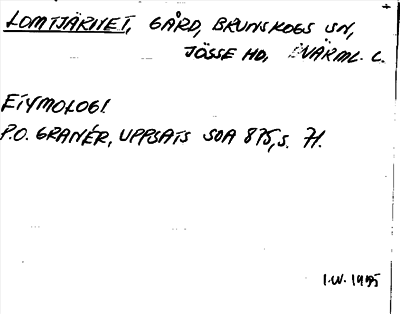 LOMTJÄRNET, GÅRD, BRUNSKOGS SN,
JÖSSE HD, VÄRML. L.
ETYMOLOGI
P.O. GRANÉR, UPPSATS SOA 875, S. 71.
I.W. 1995